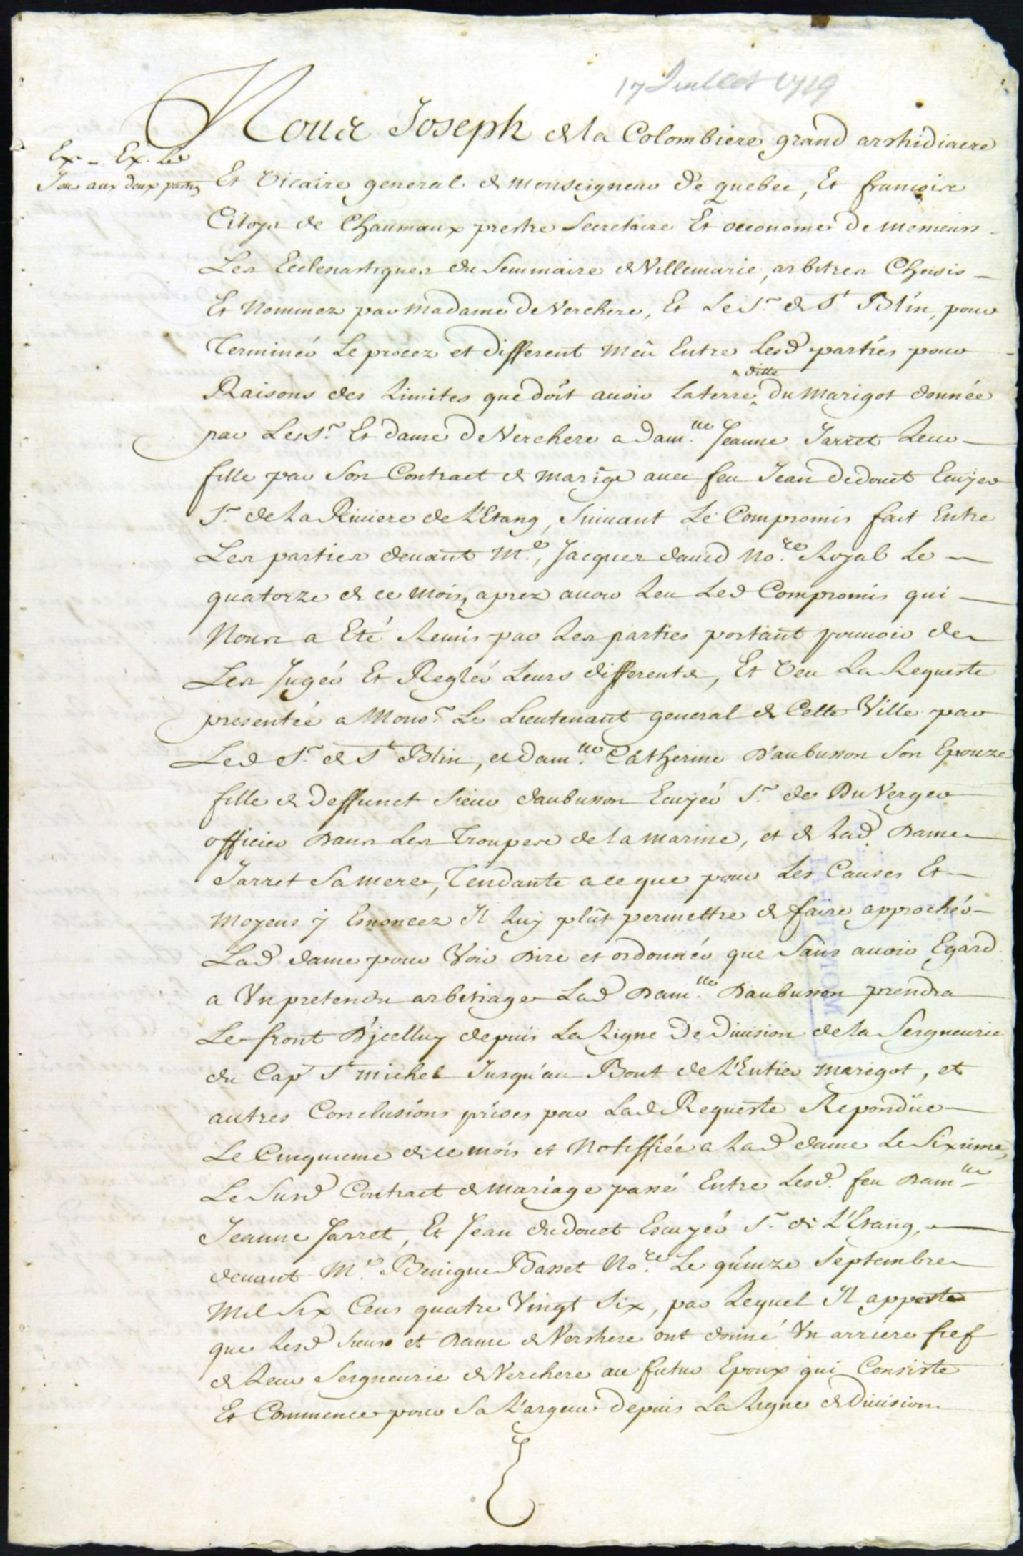 17 Juillet 1719
Nous Joseph de la Colombiere grand archidiacre
Ex. - Ex. Les
Jour aux deux partys
Et Vicaire general de monseigneur de quebec, Et françois
Citoys de Chaumaux prestre Secretaire Et oeconome de messieurs
Les Eclesiastiques du Seminaire de Villemarie, arbitres Choisis
Et Nommez par madame de Verchere, Et Le Sr. de St Blin, pour
Terminer Le procez et different meu Entre Lesd. parties pour
Raisons des Limites que doit avoir la terre ditte du marigot donnée
par Les Sr. Et dame de Verchere a dam.lle Jeanne Jarret Leur
fille par Son Contract de mariage avec feu Jean dedouet Ecuyer
Sr. de La Riviere de L'Etang, Suivant Le Compromis fait Entre
Les parties devant M.e Jacques david No.re Royal Le
quatorze de ce mois, aprez avoir Leu Led. Compromis qui
Nous a Eté Remis par Les parties portant pouvoir de
Les Juger Et Regler Leurs differents, Et Veu La Requeste
presentée a Monsr. Le Lieutenant general de Cette Ville par
Led. Sr. de St Blin, et dam.lle Catherine Daubusson Son Epouze
fille de Deffunct Sieur daubusson Ecuyer Sr. de DuVerger
officier Dans Les Troupes de la marine, et de Lad. Dame
Jarret Sa mere, Tendante a ce que pour Les Causes Et
Moyens y Enoncez Il Luy plut permettre de faire approcher
Lad. dame pour Voir Dire et ordonner que Sans avoir Egard
a Un pretendu arbitrage Lad. Dam.lle Daubusson prendra
Le front D'jcelluy depuis La Ligne De Division de la Seigneurie
du Cap St michel Jusqu'au Bout de L'Entier marigot, et
autres Conclusions prises par Lad. Requeste Repondüe
Le Cinquieme de ce mois et Notiffiée a Lad. dame Le Sixieme,
Le Susd. Contract de mariage passé Entre Lesd. feu Dam.lle
Jeanne Jarret, Et Jean dedouet Ecuyer Sr. de L'Etang,
devant M.e Benigne Basset No.re Le quinze Septembre
Mil Six Cens quatre Vingt Six, par Lequel Il appert
que Lesd. Sieur et Dame de Verchere ont donné Un arriere fief
de Leur Seigneurie de Verchere au futur Epoux qui Consiste
Et Commence pour Sa Largeur depuis La Ligne de Division